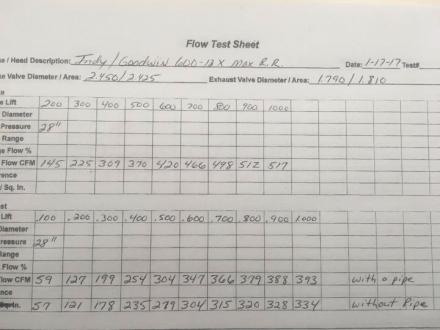 Flow Test Sheet
e / Head Description: Indy / Goodwin 600-13 X MAX R.R. Date: 1-17-17 Test#
e Valve Diameter / Area: 2.450/2.425 Exhaust Valve Diameter / Area: 1.790 / 1.810
e Lift 200 300 400 500 600 700 800 900 1000
Diameter
Pressure 28"
Range
e Flow %
Flow CFM 145 225 309 370 420 466 498 512 517
rence
/ Sq. In.
st
Lift .100 .200 .300 .400 .500 .600 .700 .800 .900 1.000
Diameter
ressure 28"
Range
Flow %
low CFM 59 127 199 254 304 347 366 379 388 393 with a pipe
nce
57 121 178 235 279 304 315 320 328 334 without Pipe